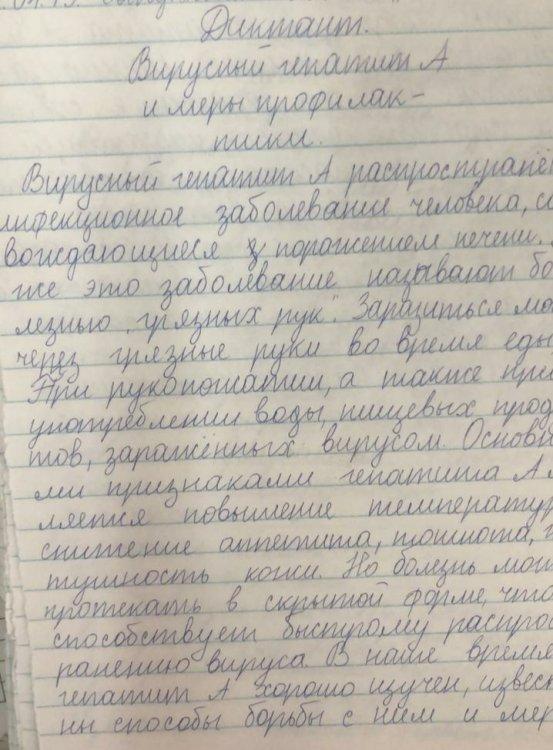 Диктант.
Вирусный гепатит А
и меры профилак-
тики.
Вирусный гепатит А распростране
инфекционное заболевание человека, со
вождающиеся поражением печени.
же это заболевание называют бо
лезнью „грязных рук". Заразиться мо
через грязные руки во время еды
При рукопожатии, а также при
употреблении воды, пищевых прод
тов, заражённых вирусом. Основн
ми признаками гепатита А
ляется повышение температур
снижение аппетита, тошнота, ж
тушность кожи. Но болезнь мож
протекать в скрытой форме, что
способствует быстрому распрос
ранению вируса. В наше время
гепатит А хорошо изучен, извест
ны способы борьбы с ним и мер